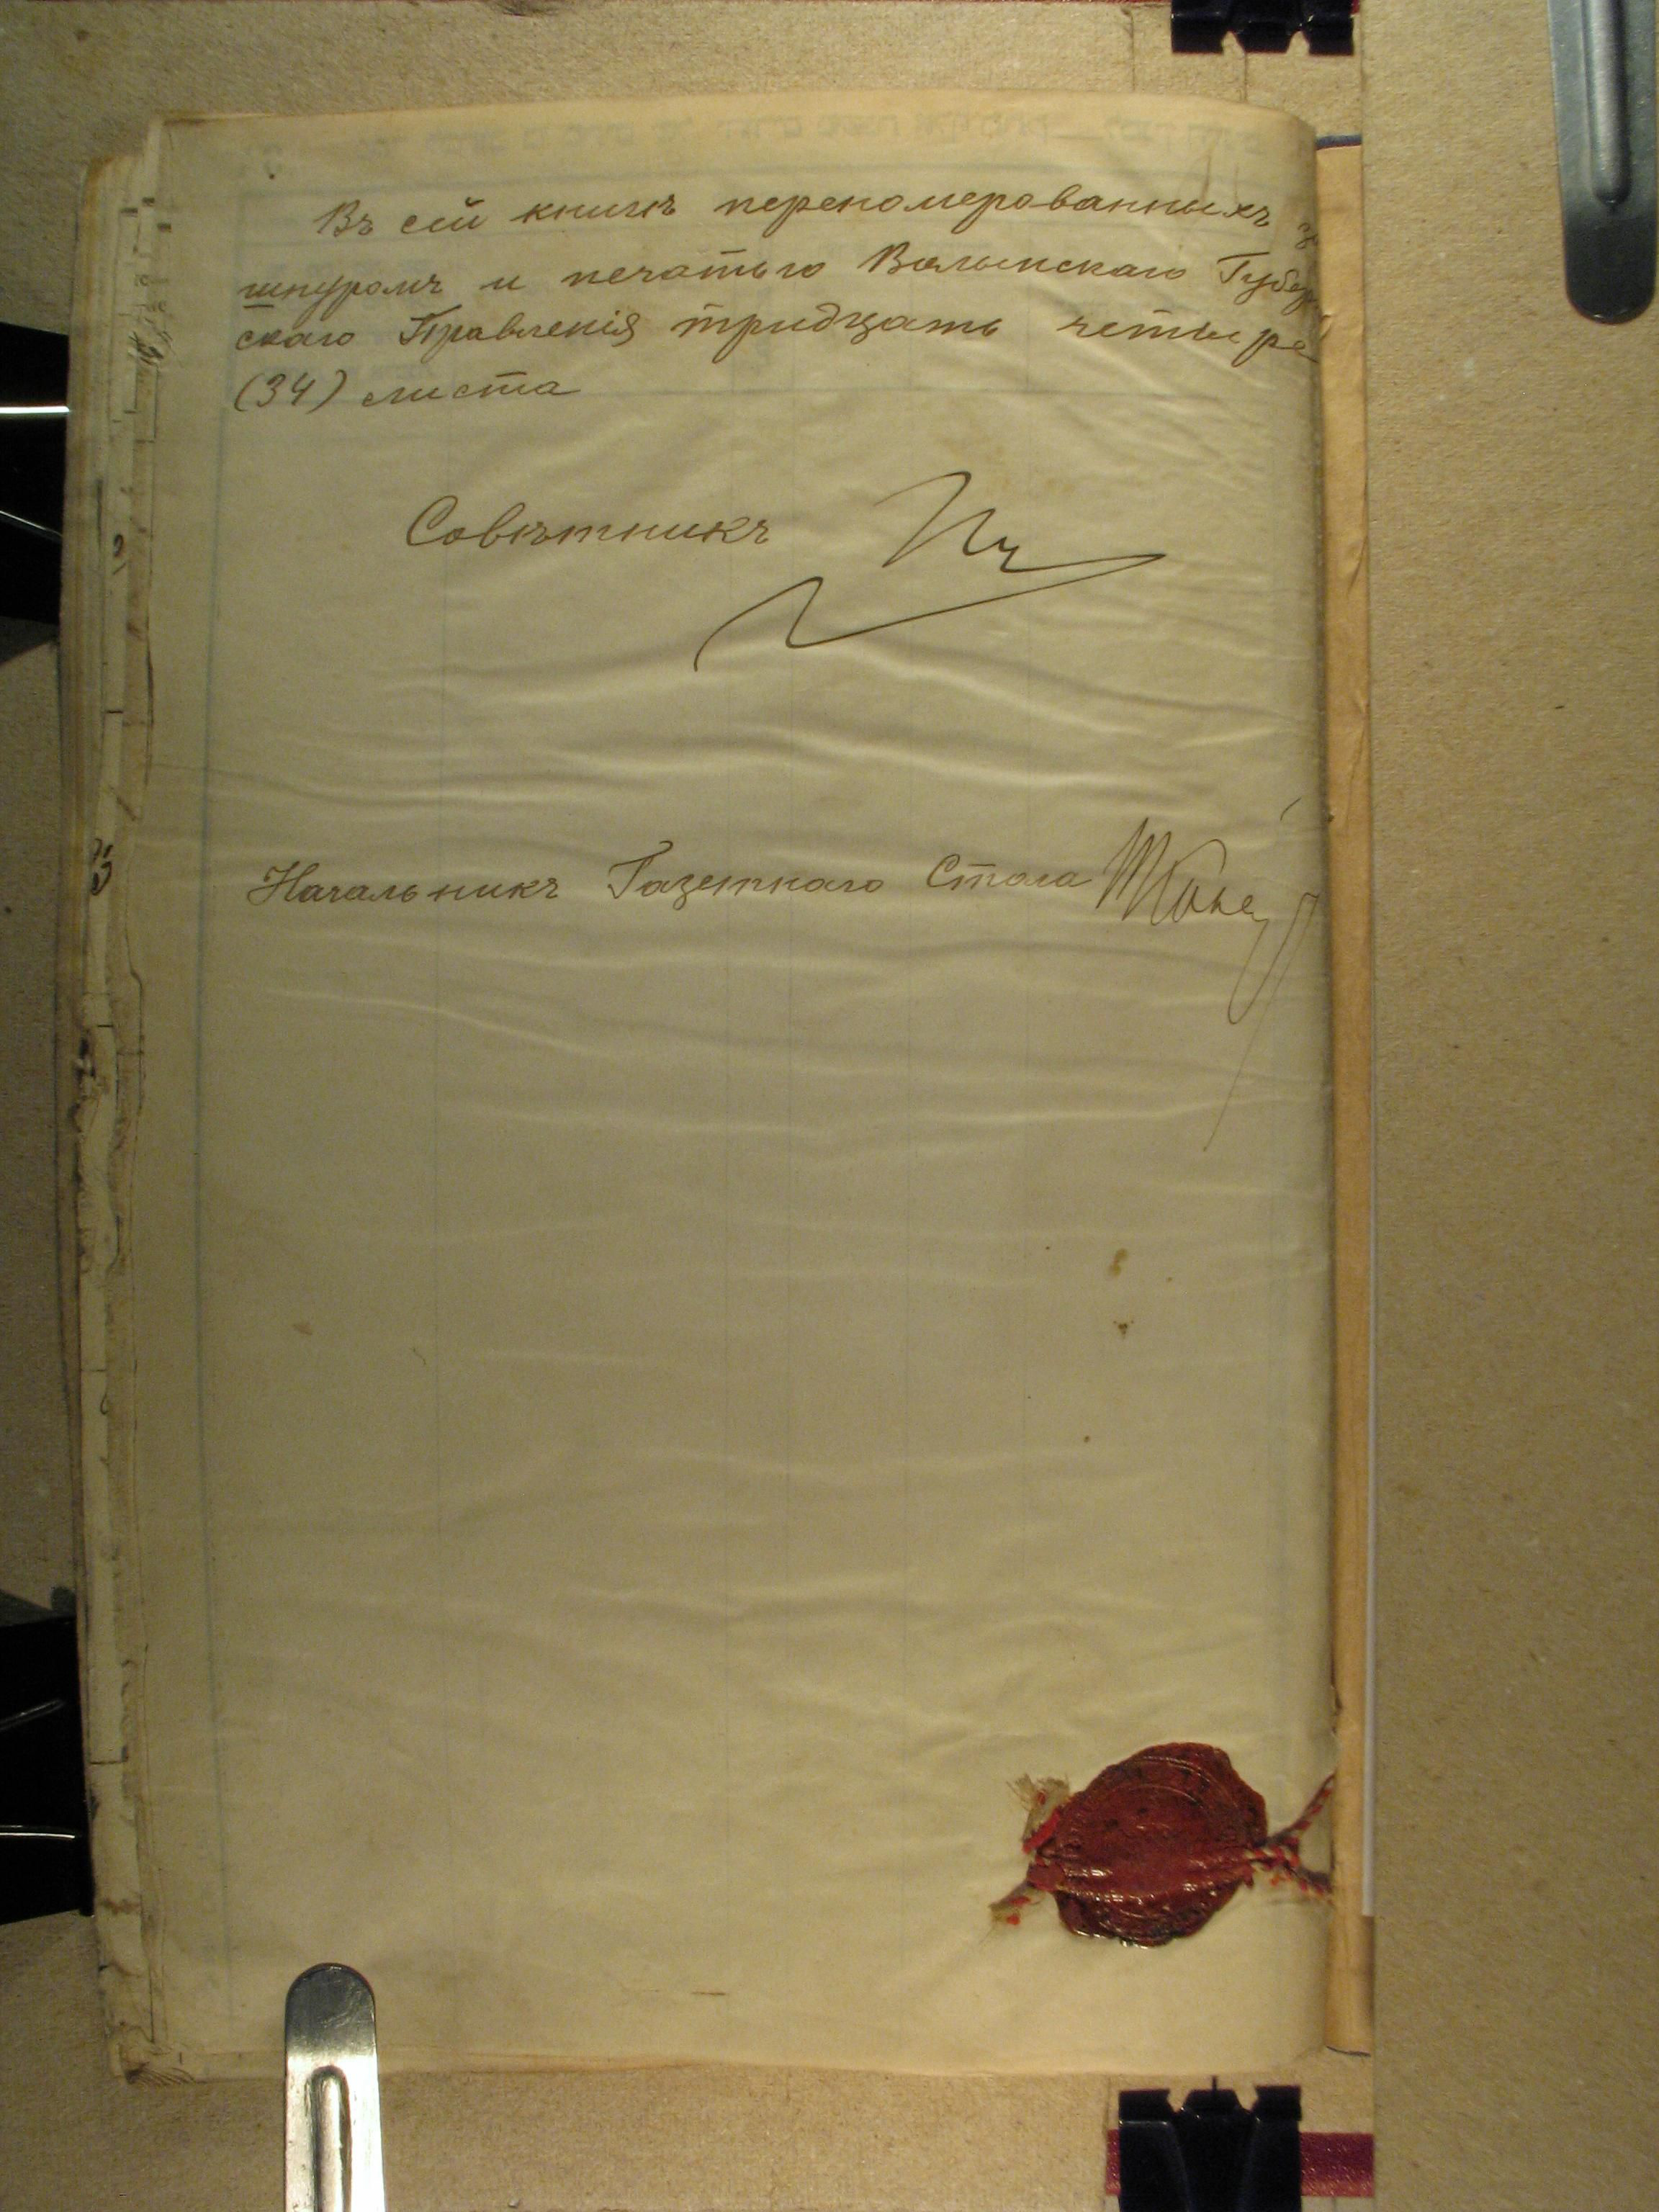 Въ сей книгѣ перономерованныхъ съ
шнуромъ и печатью Волынскаго Губерн
скаго Правленія тридцать четыре
(34) листа
Совѣтникъ
Начальникъ Газетнаго Стола